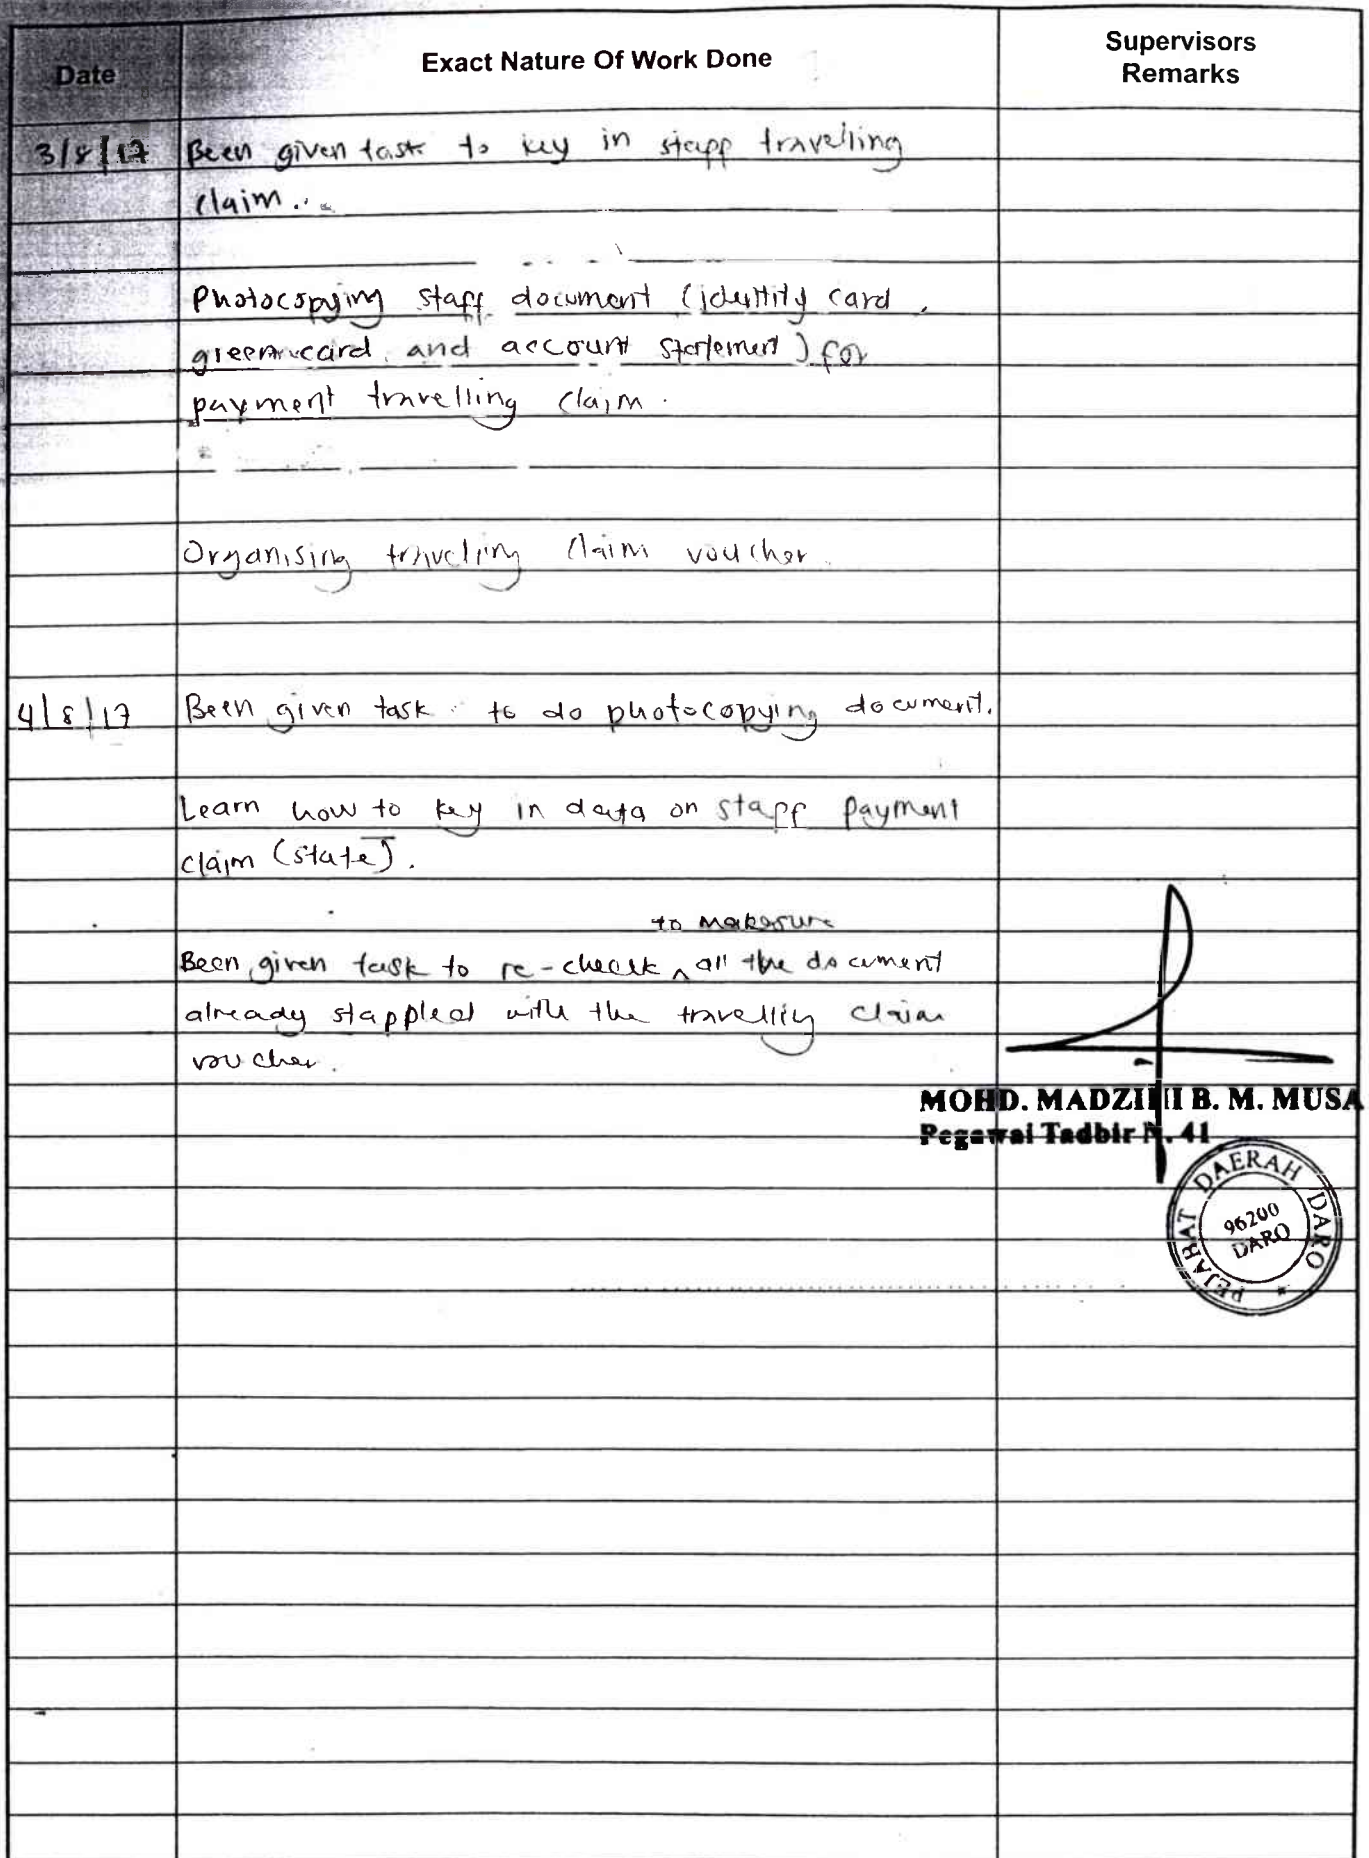 Date
Exact Nature Of Work Done
Supervisors
Remarks
3/8/17 Been given task to key in staff travelling
claim.
Photocopying staff document (identity card,
green card, and account statement) for
payment travelling claim.
Organising traveling claim voucher.
4/8/17 Been given task to do photocopying document.
Learn how to key in data on staff payment
claim (state).
to makesure
Been given task to re-check ^ all the document
already stappled with the travelling claim
voucher.
B. M. MUSA
MOHD.
Pegawai Tadbir N. 41
PEJABAT DAERAH DARO
96200
DARO